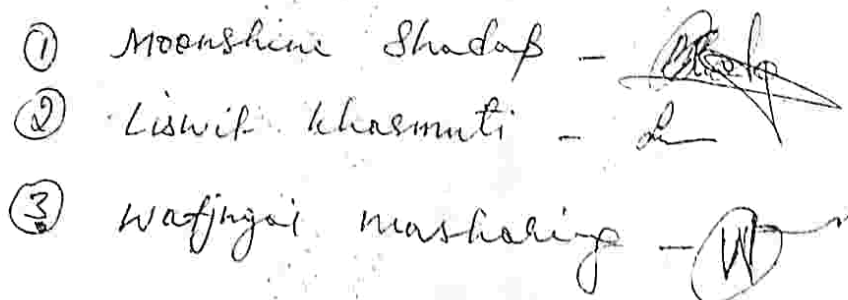 ① Moonshine Shadap -
② Liswit Khasmuti -
③ Wafjngai Masharing -